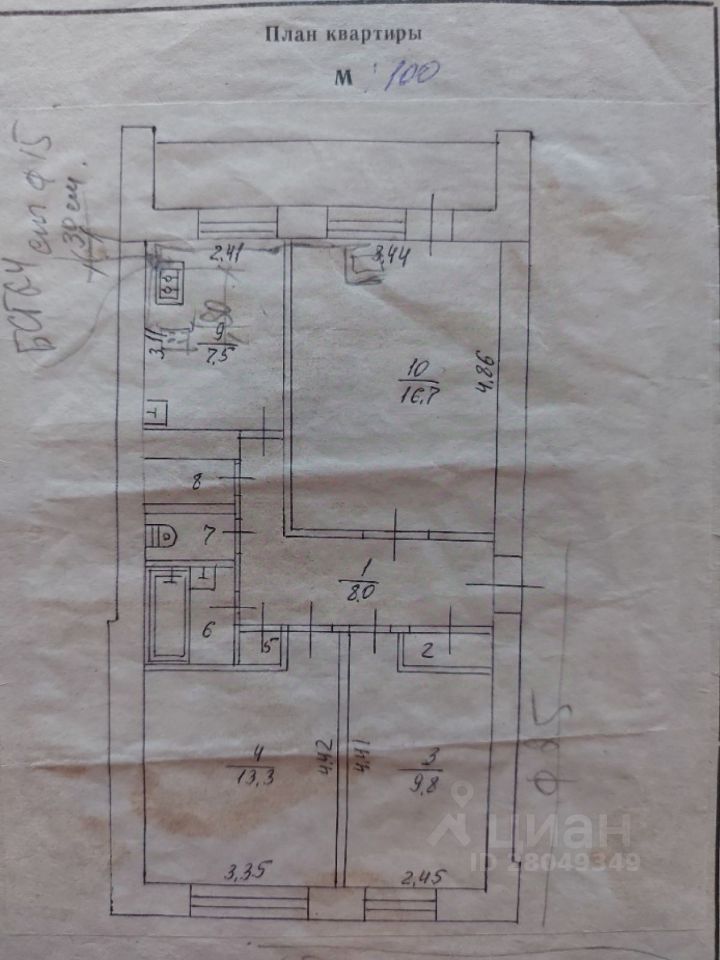 План квартиры
М 1:100
БСГОЧ
см Ф 15
39 см.
2,41
3,44
3,11
9
7,5
90
10
16,7
4,86
8
7
1
8,0
6
5
2
4
13,3
4,42
4,41
3
9,8
Ф 25
3,35
2,45
циан
ID 28049349